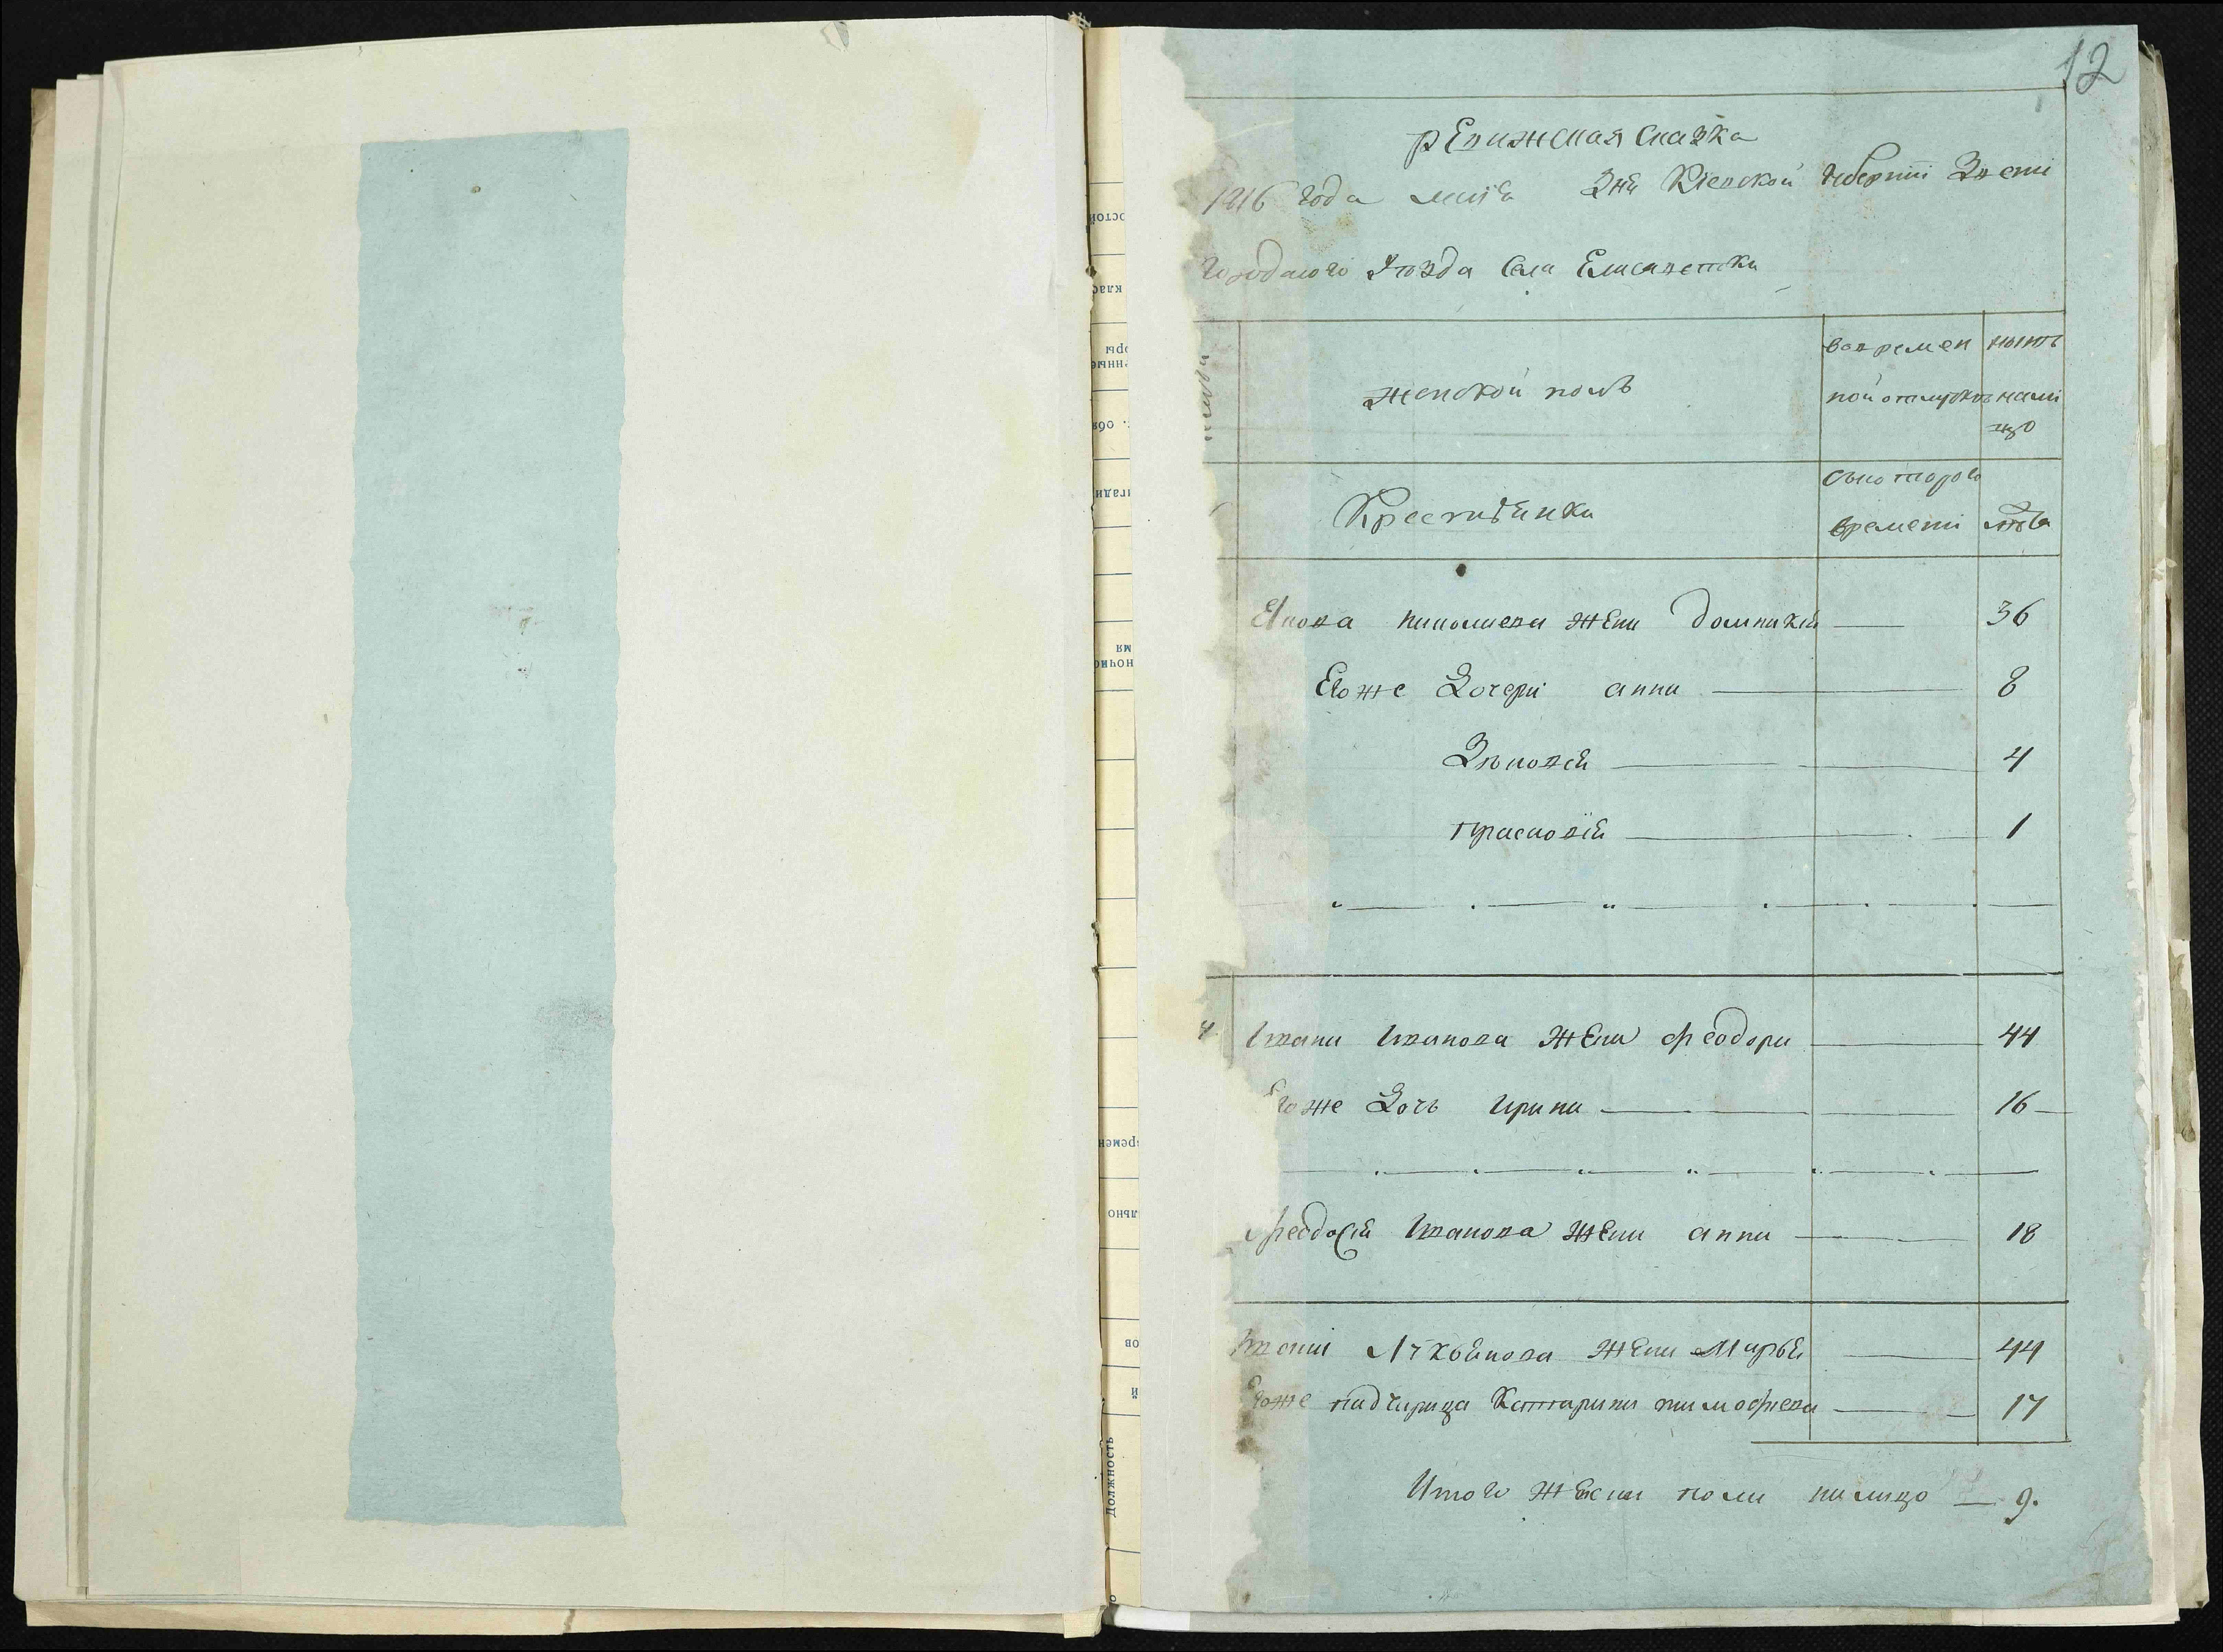 12
рЕвижская сказка
1816 года мца Дня Кіевской губерніі Звені
городского уѣзда села Елисаветки
женской полъ
во времен
ной отлучкѣ
нынѣ
нали
цо
Крестьянки
съкоторого
времені
лѣта
Якова николаева жена домникія 36
Егоже дочери анна 8
Зѣновія 4
прасковія 1
4
Ивана Иванова жена феодора 44
Егоже дочь ирина 16
феодосія Иванова жена анна 18
жена Марья 44
Егоже падчирица Катарина тимофеева 17
Итого женска пола налицо 9.
Должность